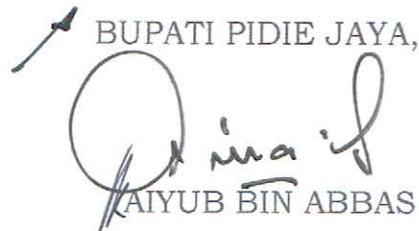 BUPATI PIDIE JAYA,
AIYUB BIN ABBAS